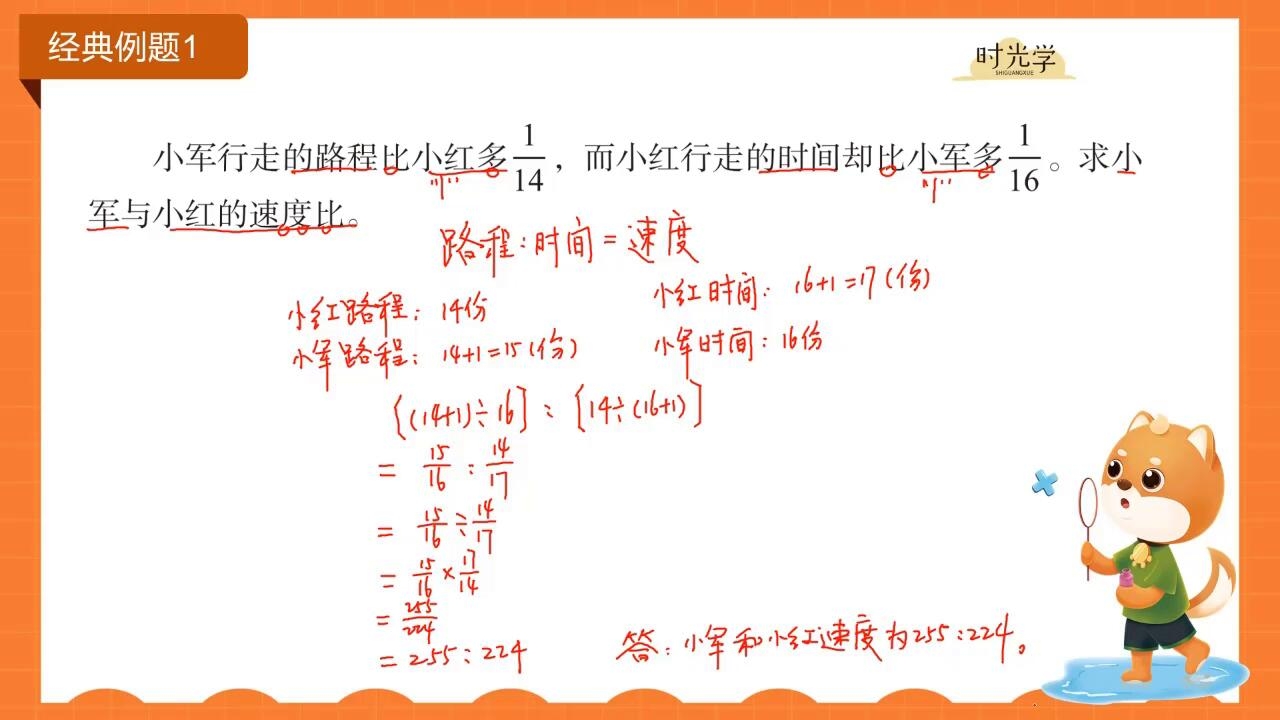 经典例题1
时光学
SHIGUANGXUE
小军行走的路程比小红多1/14，而小红行走的时间却比小军多1/16。求小
军与小红的速度比。
"1" "1"
路程:时间=速度
小红路程: 14份
小红时间: 16+1=17(份)
小军路程: 14+1=15(份)
小军时间: 16份
[(14+1)÷16] : [14÷(16+1)]
= 15/16 : 14/17
= 15/16 ÷ 14/17
= 15/16 × 17/14
= 255/224
= 255:224
答: 小军和小红速度为255:224。